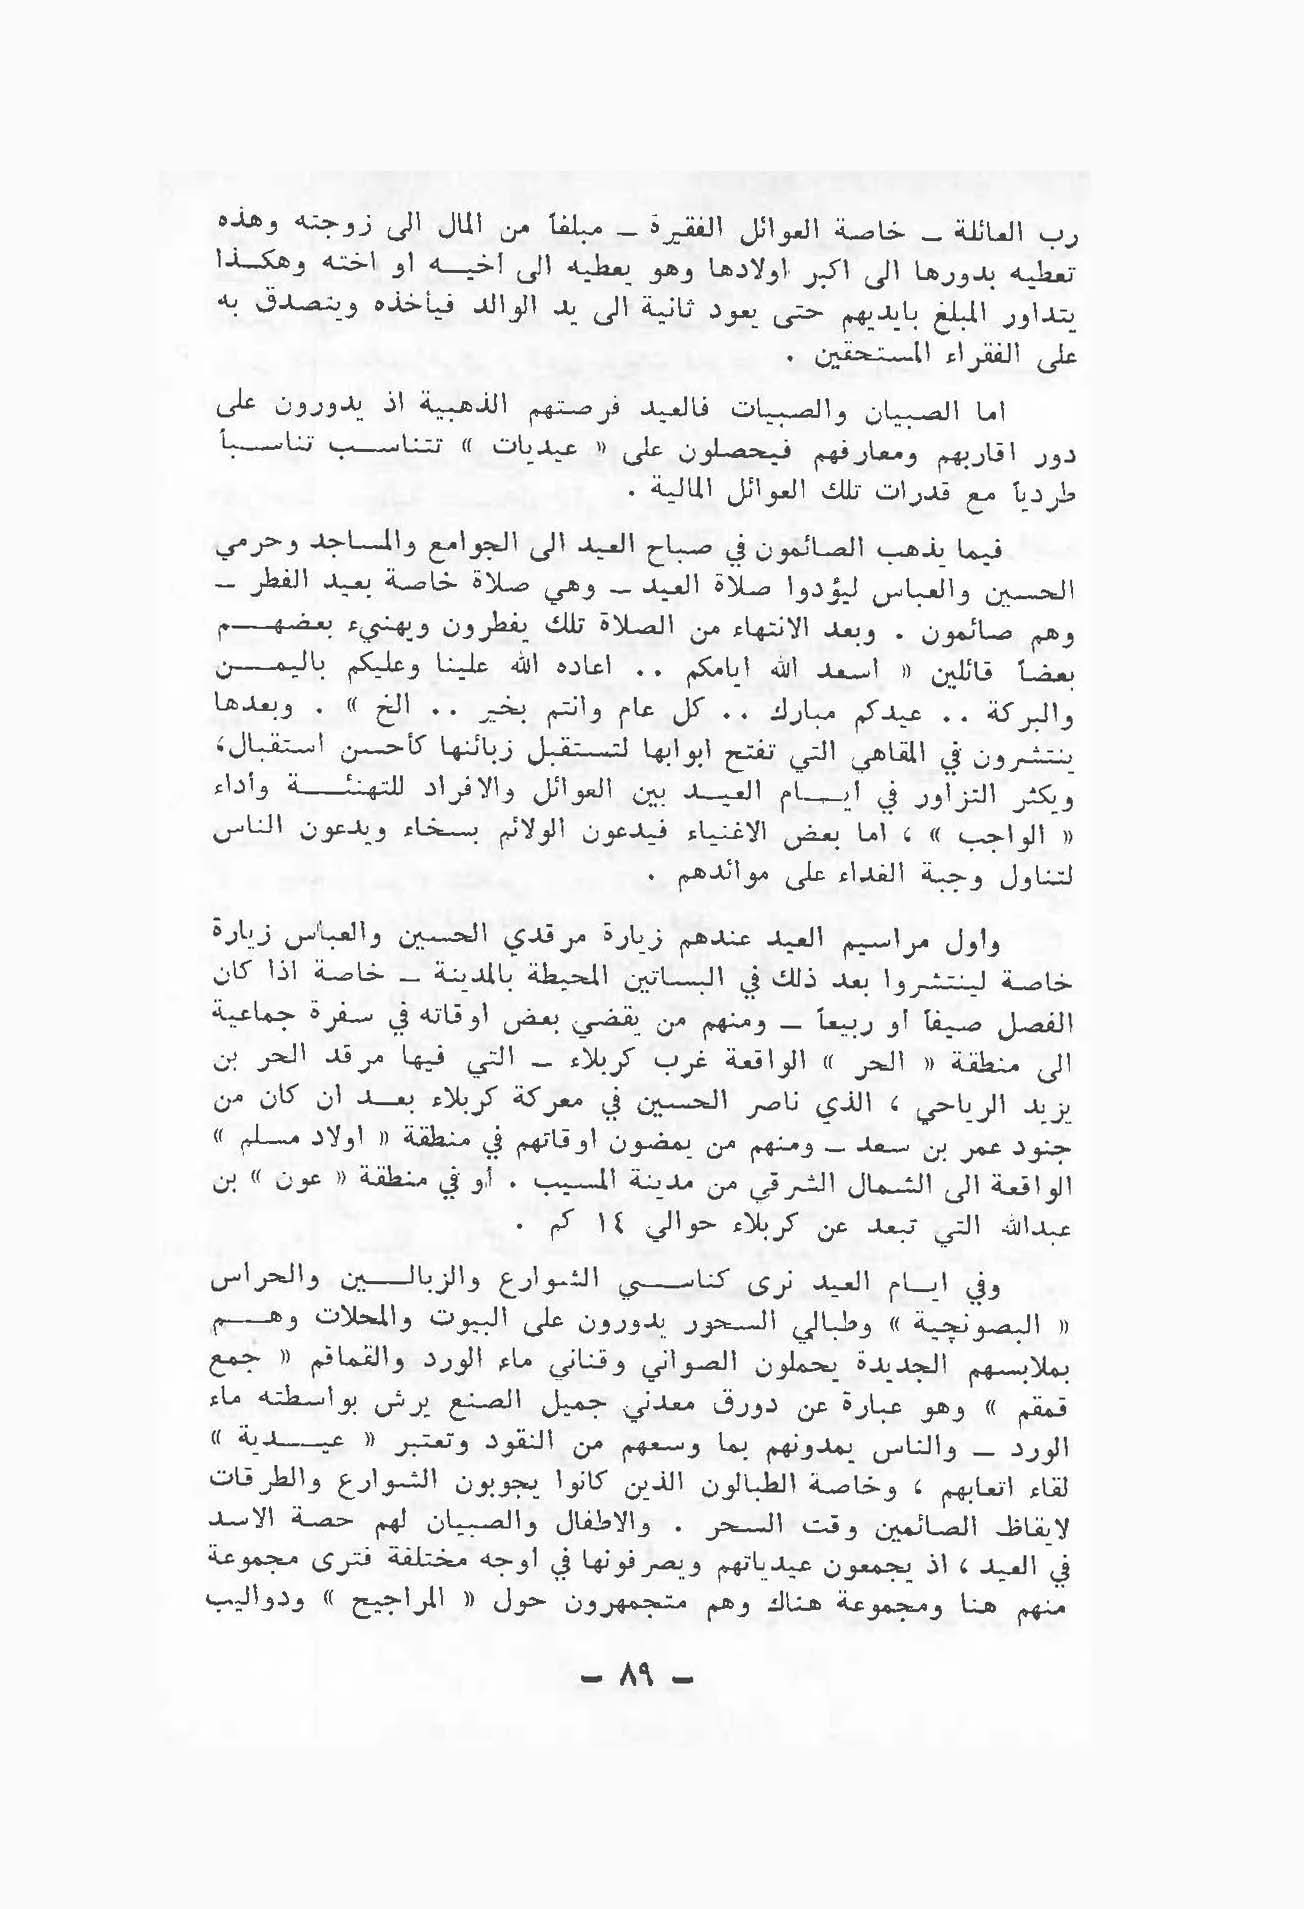 رب العائلة ــ خاصة العوائل الفقيرة ــ مبلغاً من المال الى زوجته وهذه
تعطيه بدورها الى اكبر اولادها وهو يعطيه الى أخيـــه او اخته وهكــذا
يتداور المبلغ بايديهم حتى يعود ثانية الى يد الوالد فيأخذه ويتصدق به
على الفقراء المستحقين .
اما الصبيان والصبيات فالعيد فرصتهم الذهبية اذ يدورون على
دور اقاربهم ومعارفهم فيحصلون على « عيديات » تتناســـب تناســـباً
طردياً مع قدرات تلك العوائل المالية .
فيما يذهب الصائمون في صباح العيد الى الجوامع والمساجد وحرمي
الحسين والعباس ليؤدوا صلاة العيد ــ وهي صلاة خاصة بعيد الفطر ــ
وهم صائمون . وبعد الانتهاء من الصلاة تلك يفطرون ويهنيء بعضهـــم
بعضاً قائلين « اسعد الله ايامكم .. اعاده الله علينا وعليكم باليمـــن
والبركة .. عيدكم مبارك .. كل عام وانتم بخير .. الخ » . وبعدها
ينتشرون في المقاهي التي تفتح ابوابها لتستقبل زبائنها كأحسن استقبال،
ويكثر التزاور في ايـــام العيــد بين العوائل والافراد للتهنئـــة وأداء
« الواجب » ، اما بعض الاغنياء فيدعون الولائم بسخاء ويدعون الناس
لتناول وجبة الغداء على موائدهم .
واول مراسيم العيد عندهم زيارة مرقدي الحسين والعباس زيارة
خاصة لينتشروا بعد ذلك في البساتين المحيطة بالمدينة ــ خاصة اذا كان
الفصل صيفاً أو ربيعاً ــ ومنهم من يقضي بعض اوقاته في سفرة جماعية
الى منطقة « الحر » الواقعة غرب كربلاء ــ التي فيها مرقد الحر بن
يزيد الرياحي ، الذي ناصر الحسين في معركة كربلاء بعــد ان كان من
جنود عمر بن سعد ــ ومنهم من يمضون اوقاتهم في منطقة « اولاد مسلم »
الواقعة الى الشمال الشرقي من مدينة المسيب . أو في منطقة « عون » بن
عبدالله التي تبعد عن كربلاء حوالي ١٤ كم .
وفي ايــام العيد نرى كناســـي الشوارع والزبالـــين والحراس
« البصونچية » وطبالي السحور يدورون على البيوت والمحلات وهـــم
بملابسهم الجديدة يحملون الصواني وقناني ماء الورد والقماقم « جمع
قمقم » وهو عبارة عن دورق معدني جميل الصنع يرش بواسطته ماء
الورد ــ والناس يمدونهم بما وسعهم من النقود وتعتبر « عيـــدية »
لقاء اتعابهم ، وخاصة الطبالون الذين كانوا يجوبون الشوارع والطرقات
لايقاظ الصائمين وقت السحر . والاطفال والصبيان لهم حصة الاسد
في العيد ، اذ يجمعون عيدياتهم ويصرفونها في اوجه مختلفة فترى مجموعة
منهم هنا ومجموعة هناك وهم متجمهرون حول « المراجيح » ودواليب
ــ ٨٩ ــ